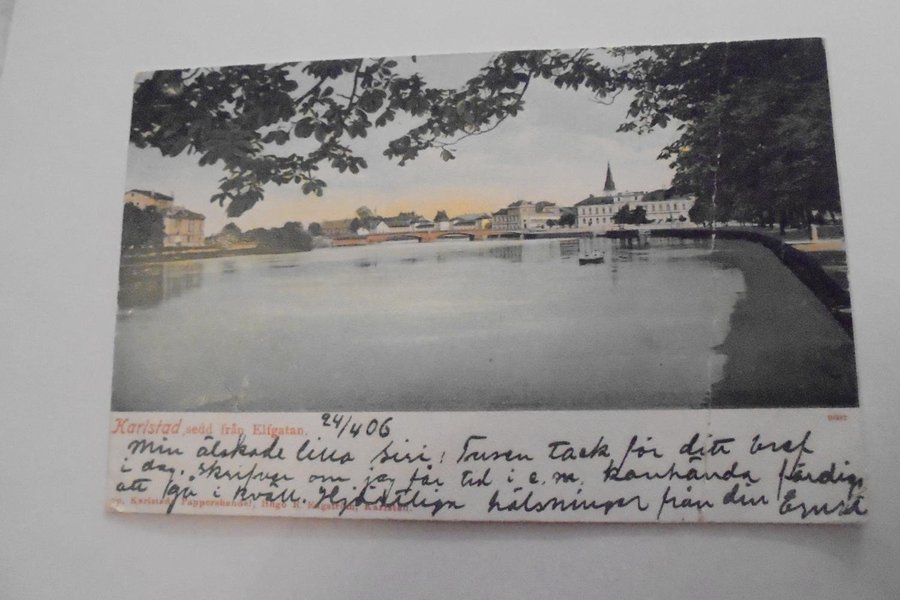 Karlstad, sedd från Elfgatan. 24/4 06
Min älskade lilla Siri! Tusen tack för ditt bref
i dag, skrifver om jag får tid i e.m. kanhända färdig
att gå i kväll. Hjärtliga hälsningar från din
Karlstads Pappershandel, Hugo Karlstad.